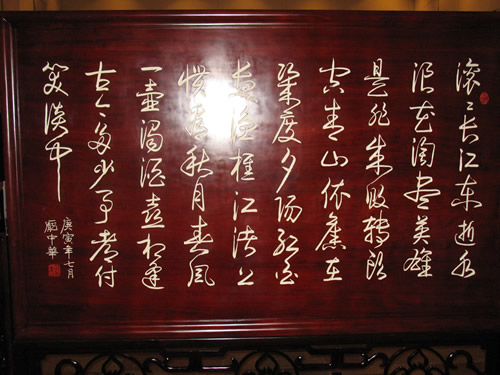 滚〻长江东逝水
浪花淘尽英雄
是非成败转头
空青山依旧在
几度夕阳红白
发渔樵江渚上
惯看秋月春风
一壶浊酒喜相逢
古今多少事都付
笑谈中
庚寅年七月
中華